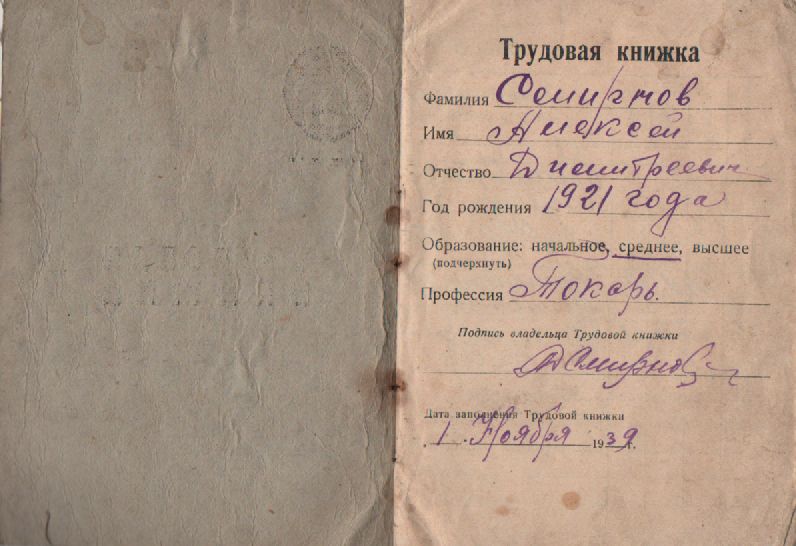 Трудовая книжка
Фамилия Смирнов
Имя Алексей
Отчество Димитреевич
Год рождения 1921 года
Образование: начальное, среднее, высшее
(подчеркнуть)
Профессия Токарь.
Подпись владельца Трудовой книжки
АСмирнов
Дата заполнения Трудовой книжки
1 Ноября 1939 г.